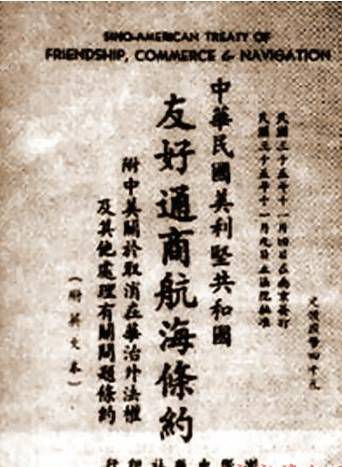 SINO-AMERICAN TREATY OF
FRIENDSHIP, COMMERCE & NAVIGATION
民國三十五年十一月四日在南京簽訂
民國三十五年十一月九日立法院批准
中華民國美利堅共和國
友好通商航海條約
附中美關於取消在華治外法權
及其他處理有關問題條約
(附英文本)